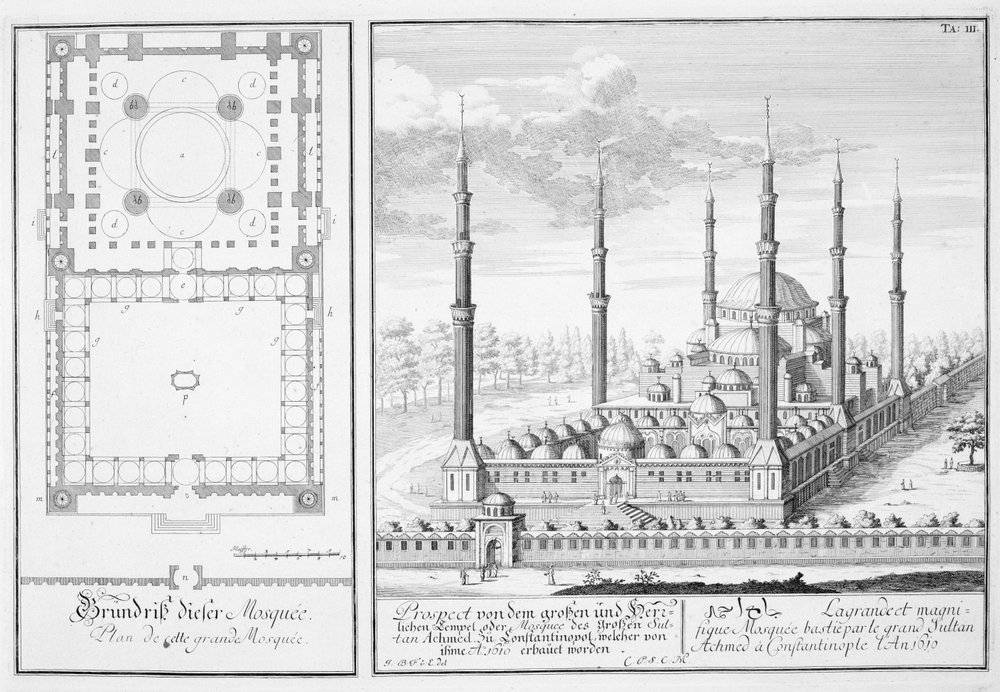 TA: III.
d
c
d
c
a
c
l
l
d
c
d
i
i
e
h
h
g
g
g
g
f
f
p
m
o
m
n
Grundriß dieser Mosquée.
Plan de cette grande Mosquée.
Prospect von dem großen und Herr=
lichen Tempel oder Mosquee des Großen Sul=
tan Achmed. Zu Constantinopol, welcher von
ihme A.º 1610 erbauet worden.
I. B. F. v. E. del
C. P. S. C. M.
La grande et magni=
fique Mosquée bastie par le grand Sultan
Achmed à Constantinople l'An 1610